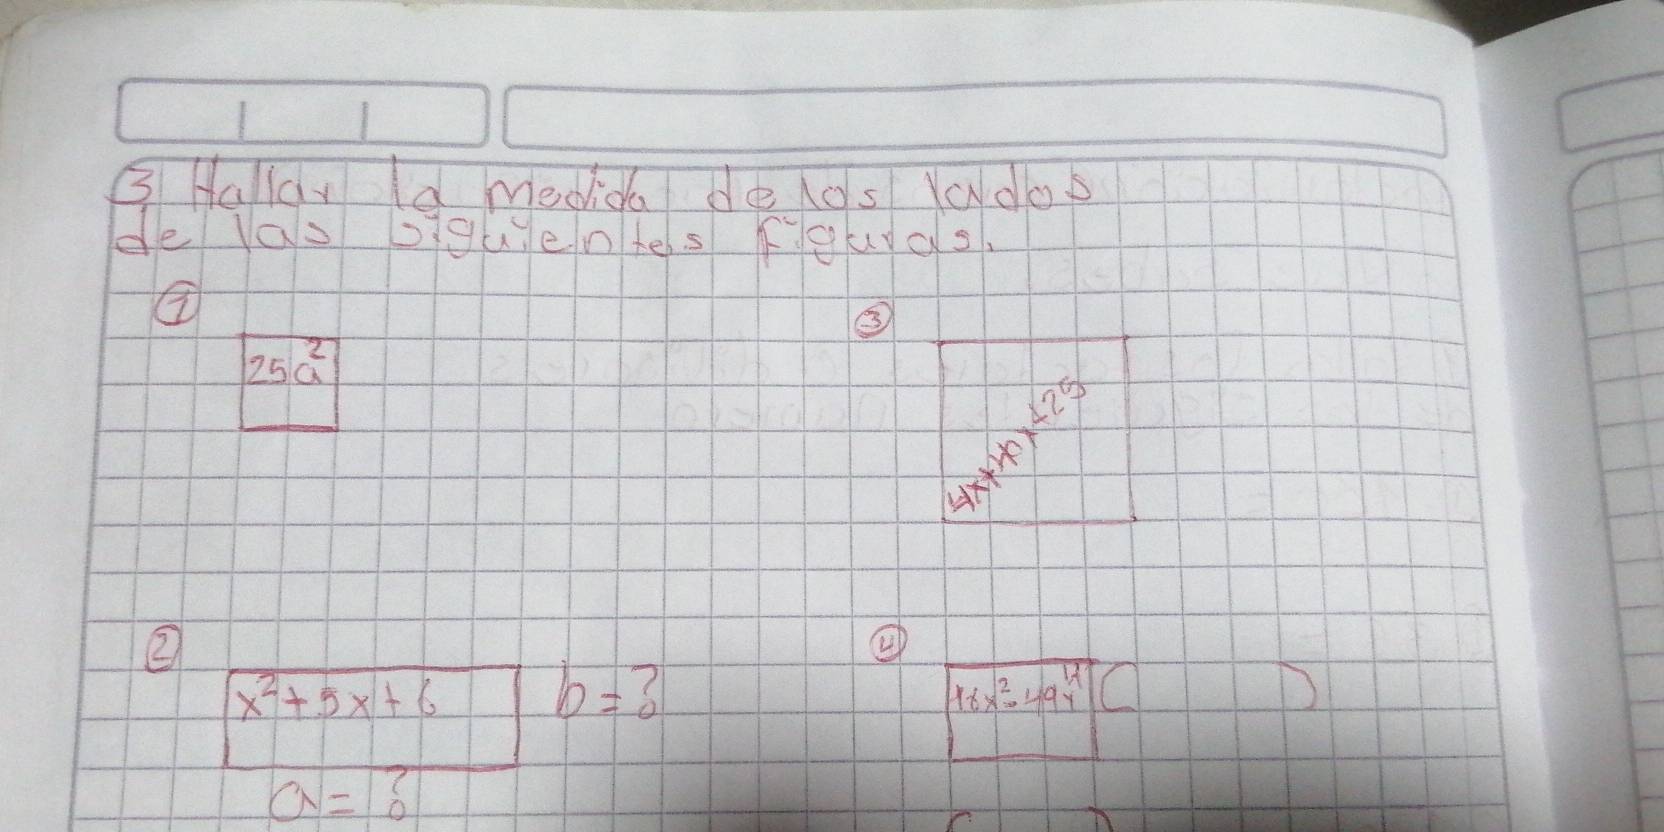 3 Hallar la medida de los lados
de las siguientes figuras.
1
25a²
3
4x+40x+25
2
x²+5x+6
b=?
a=?
4
16x²-49y⁴ ( )
( )